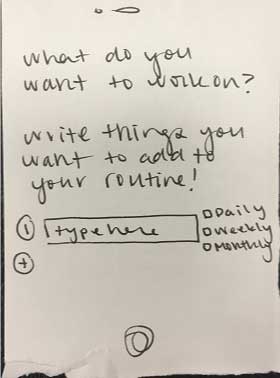 what do you
want to work on?
write things you
want to add to
your routine!
1 type here
Daily
Weekly
Monthly
+